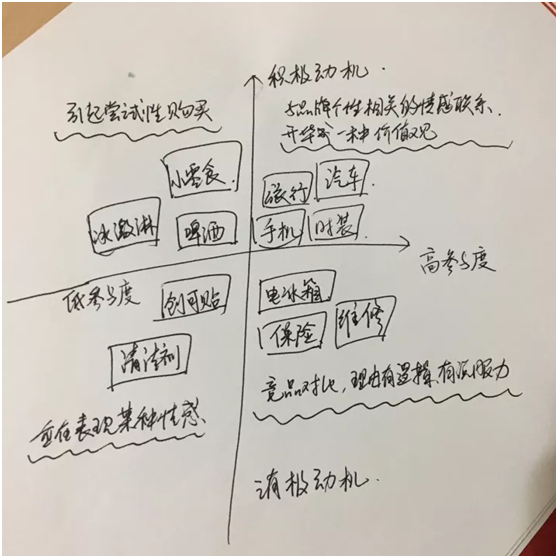 积极动机.
引起尝试性购买
与品牌个性相关的情感联系.
升华成一种价值观
小零食.
旅行
汽车
冰激淋
啤酒
手机
时装
高参与度
低参与度
创可贴
电冰箱
保险
维修
清洁剂
竞品对比, 理由有逻辑、有说服力
重在表现某种性感
消极动机.